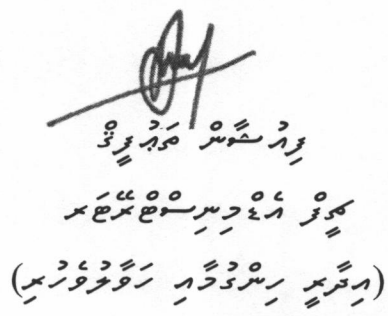 ފިއުޝާން ތަޢުފީޤް
ޗީފް އެޑްމިނިސްޓްރޭޓަރ
(އިދާރީ ހިންގުމާއި ހަވާލުވެހުރި)